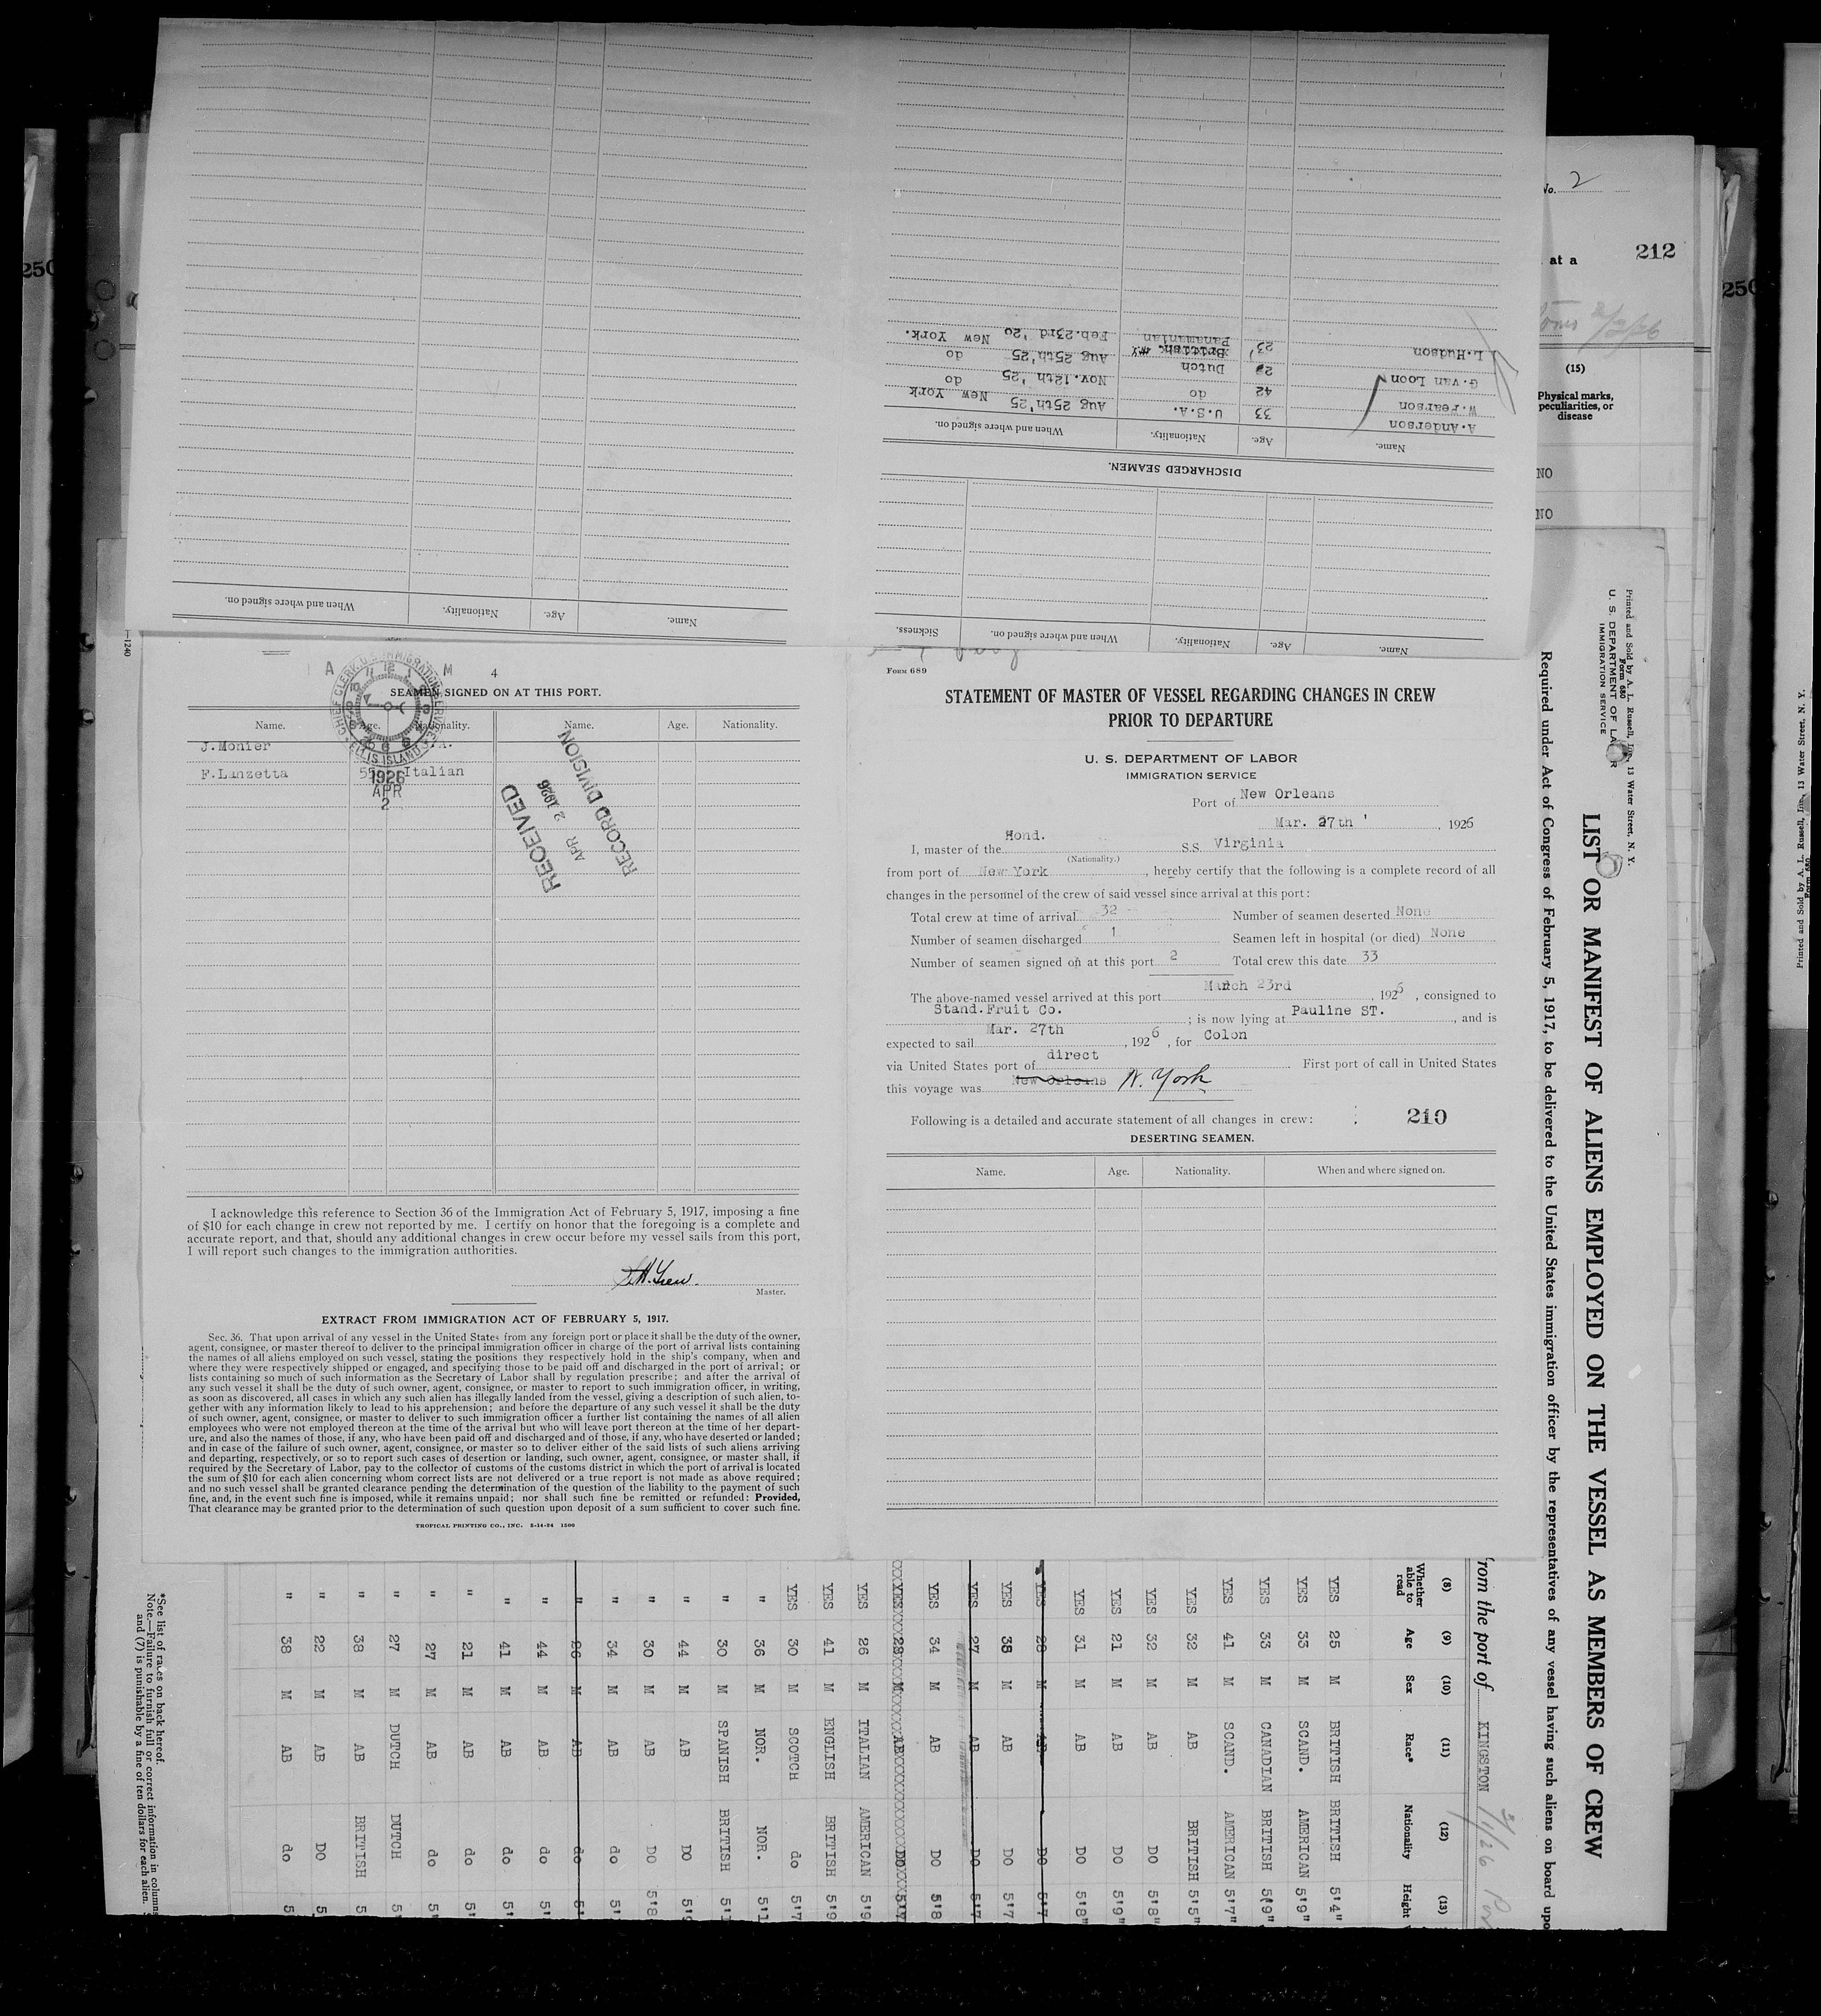 Form 689
STATEMENT OF MASTER OF VESSEL REGARDING CHANGES IN CREW
PRIOR TO DEPARTURE
U. S. DEPARTMENT OF LABOR
IMMIGRATION SERVICE
Port of New Orleans
Mar. 27th ' , 1926
I, master of the Hond. S.S. Virginia
(Nationality.)
from port of New York , hereby certify that the following is a complete record of all
changes in the personnel of the crew of said vessel since arrival at this port:
Total crew at time of arrival 32 Number of seamen deserted None
Number of seamen discharged 1 Seamen left in hospital (or died) None
Number of seamen signed on at this port 2 Total crew this date 33
The above-named vessel arrived at this port March 23rd , 1926 , consigned to
Stand. Fruit Co. ; is now lying at Pauline ST. , and is
expected to sail Mar. 27th , 1926 , for Colon
via United States port of direct . First port of call in United States
this voyage was New Orleans N. York
Following is a detailed and accurate statement of all changes in crew: 210
DESERTING SEAMEN.
Name. Age. Nationality. When and where signed on.
4
SEAMEN SIGNED ON AT THIS PORT.
Name. Age. Nationality. Name. Age. Nationality.
J. Monier
F. Lanzetta 55 Italian
A M
CHIEF CLERK, U.S. IMMIGRATION SERVICE
ELLIS ISLAND
1926
APR
2
RECEIVED
APR 2 1926
RECORD DIVISION
I acknowledge this reference to Section 36 of the Immigration Act of February 5, 1917, imposing a fine
of $10 for each change in crew not reported by me. I certify on honor that the foregoing is a complete and
accurate report, and that, should any additional changes in crew occur before my vessel sails from this port,
I will report such changes to the immigration authorities.
Master.
EXTRACT FROM IMMIGRATION ACT OF FEBRUARY 5, 1917.
Sec. 36. That upon arrival of any vessel in the United States from any foreign port or place it shall be the duty of the owner,
agent, consignee, or master thereof to deliver to the principal immigration officer in charge of the port of arrival lists containing
the names of all aliens employed on such vessel, stating the positions they respectively hold in the ship's company, when and
where they were respectively shipped or engaged, and specifying those to be paid off and discharged in the port of arrival; or
lists containing so much of such information as the Secretary of Labor shall by regulation prescribe; and after the arrival of
any such vessel it shall be the duty of such owner, agent, consignee, or master to report to such immigration officer, in writing,
as soon as discovered, all cases in which any such alien has illegally landed from the vessel, giving a description of such alien, to-
gether with any information likely to lead to his apprehension; and before the departure of any such vessel it shall be the duty
of such owner, agent, consignee, or master to deliver to such immigration officer a further list containing the names of all alien
employees who were not employed thereon at the time of the arrival but who will leave port thereon at the time of her depart-
ure, and also the names of those, if any, who have been paid off and discharged and of those, if any, who have deserted or landed;
and in case of the failure of such owner, agent, consignee, or master so to deliver either of the said lists of such aliens arriving
and departing, respectively, or so to report such cases of desertion or landing, such owner, agent, consignee, or master shall, if
required by the Secretary of Labor, pay to the collector of customs of the customs district in which the port of arrival is located
the sum of $10 for each alien concerning whom correct lists are not delivered or a true report is not made as above required;
and no such vessel shall be granted clearance pending the determination of the question of the liability to the payment of such
fine, and, in the event such fine is imposed, while it remains unpaid; nor shall such fine be remitted or refunded: Provided,
That clearance may be granted prior to the determination of such question upon deposit of a sum sufficient to cover such fine.
TROPICAL PRINTING CO., INC. 5-14-24 1500
Name. Age. Nationality. When and where signed on. Sickness.
DISCHARGED SEAMEN.
Name. Age. Nationality. When and where signed on.
A. Anderson 33 U.S.A. Aug 25th'25 New York
W. Pearson 42 do Nov. 12th '25 do
G. Van Loon Dutch Aug 25th'25 do
L. Hudson 23 British. Panamanian Feb. 23rd '26 New York.
Name. Age. Nationality. When and where signed on.
No. 2
at a
212
250
250
(15)
Physical marks,
peculiarities, or
disease
NO
NO
Printed and Sold by A. L. Russell, Inc., 13 Water Street, N. Y.
Form 680
U. S. DEPARTMENT OF LABOR
IMMIGRATION SERVICE
LIST OR MANIFEST OF ALIENS EMPLOYED ON THE VESSEL AS MEMBERS OF CREW
Required under Act of Congress of February 5, 1917, to be delivered to the United States immigration officer by the representatives of any vessel having such aliens on board upo
from the port of KINGSTON
(8) (9) (10) (11) (12) (13)
Whether able to read Age Sex Race* Nationality Height
YES 25 M BRITISH BRITISH 5'4"
YES 33 M SCAND. AMERICAN 5'9"
YES 33 M CANADIAN BRITISH 5'9"
YES 41 M SCAND. AMERICAN 5'7"
YES 32 M AB BRITISH 5'5"
YES 32 M AB DO 5'8"
YES 21 M AB DO 5'9"
YES 31 M AB DO 5'8"
YES 28 M AB DO 5'7
YES 38 M AB DO 5'7
YES 27 M AB DO 5'7
YES 34 M AB DO 5'8
YES 28 M AB DO
YES 26 M ITALIAN AMERICAN 5'9
YES 41 M ENGLISH BRITISH 5'9
YES 30 M SCOTCH do 5'7
" 36 M NOR. NOR. 5'1
" 30 M SPANISH BRITISH 5'1
" 44 M AB DO 5'9
" 30 M AB DO 5'8
" 34 M AB do 5'
" 26 M AB do 5'
" 44 M AB do 5'
" 41 M AB do 5'
" 21 M AB do 5'
" 27 M AB do 5'
" 27 M DUTCH DUTCH 5'
" 38 M AB BRITISH 5
" 22 M AB DO 5
" 38 M AB do 5
*See list of races on back hereof.
Note.—Failure to furnish full or correct information in columns
and (7) is punishable by a fine of ten dollars for each alien.